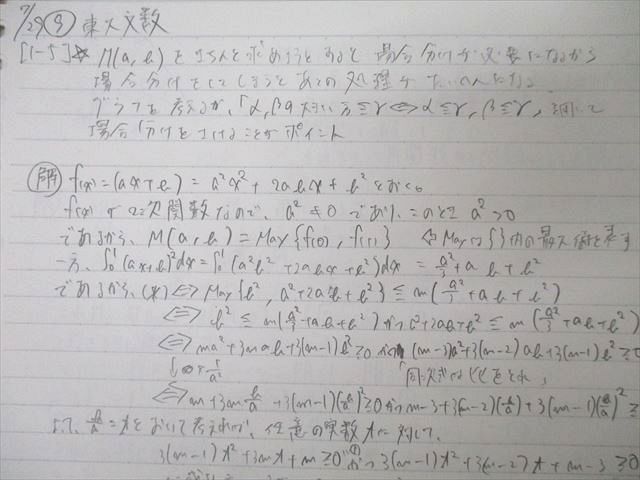 7/29 ⑨ 東大文数
[1-5]☆ M(a, b) をきちんと求めようとすると 場合分けが必要になるから
場合分けをしてしまうとあとの処理がたいへんになる
グラフを考えるが、「α, βの大きい方≦γ⇔α≦γ, β≦γ」を用いて
場合分けをさけることがポイント
解 f(x)=(ax+b)² = a²x² + 2abx + b² とおく。
f(x) が 2次関数なので、a² ≠ 0 であり、このとき a²>0
であるから、M(a, b) = Max{f(0), f(1)} ⇦ Maxは{ }内の最大値を表す
一方、∫₀¹(ax+b)²dx = ∫₀¹(a²x²+2abx+b²)dx = a²/3 + ab + b²
であるから、(*) ⇔ Max{b², a²+2ab+b²} ≦ m(a²/3 + ab + b²)
⇔ b² ≦ m(a²/3+ab+b²) かつ a²+2ab+b² ≦ m(a²/3+ab+b²)
⇔ ma²+3mab+3(m-1)b²≧0 かつ (m-3)a²+3(m-2)ab+3(m-1)b²≧0
同次式は比をとれ
⇔ m+3m b/a +3(m-1)(b/a)²≧0 かつ m-3+3(m-2)(b/a)+3(m-1)(b/a)²≧
よって、b/a=xとおいて考えれば、任意の実数xに対して、
3(m-1)x²+3mx+m≧0 かつ 3(m-1)x²+3(m-2)x+m-3≧0